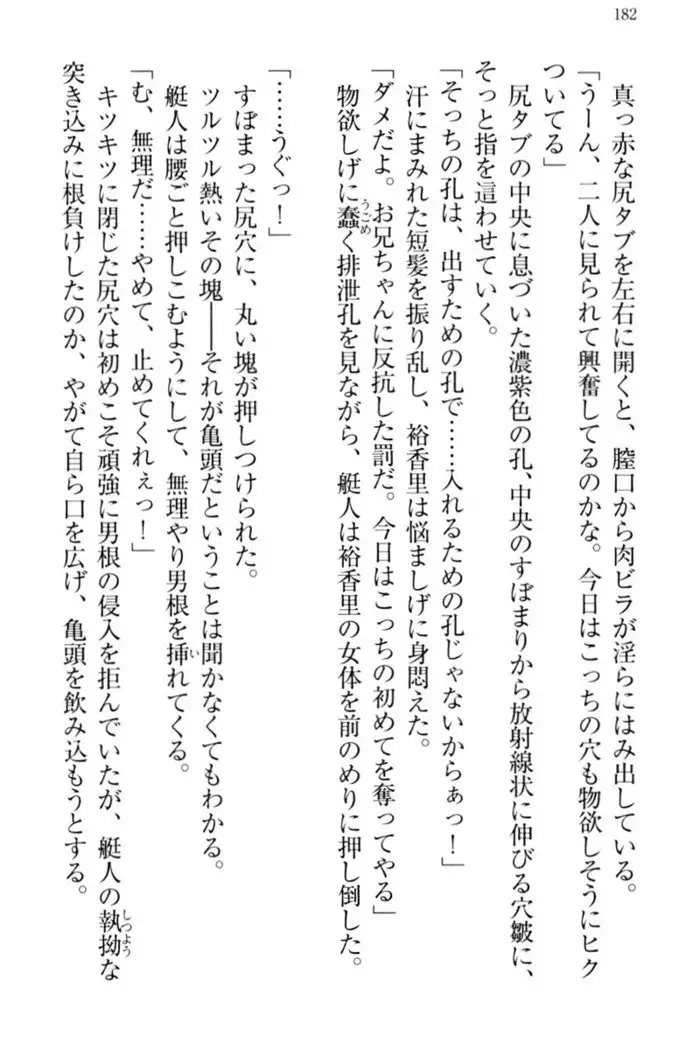 182
真っ赤な尻タブを左右に開くと、膣口から肉ビラが淫らにはみ出している。
「うーん、二人に見られて興奮してるのかな。今日はこっちの穴も物欲しそうにヒク
ついてる」
尻タブの中央に息づいた濃紫色の孔、中央のすぼまりから放射線状に伸びる穴皺に、
そっと指を這わせていく。
「そっちの孔は、出すための孔で……入れるための孔じゃないからぁっ！」
汗にまみれた短髪を振り乱し、裕香里は悩ましげに身悶えた。
「ダメだよ。お兄ちゃんに反抗した罰だ。今日はこっちの初めてを奪ってやる」
物欲しげに蠢く排泄孔を見ながら、艇人は裕香里の女体を前のめりに押し倒した。
「……うぐっ！」
すぼまった尻穴に、丸い塊が押しつけられた。
ツルツル熱いその塊――それが亀頭だということは聞かなくてもわかる。
艇人は腰ごと押しこむようにして、無理やり男根を挿れてくる。
「む、無理だ……やめて、止めてくれぇっ！」
キツキツに閉じた尻穴は初めこそ頑強に男根の侵入を拒んでいたが、艇人の執拗な
突き込みに根負けしたのか、やがて自ら口を広げ、亀頭を飲み込もうとする。